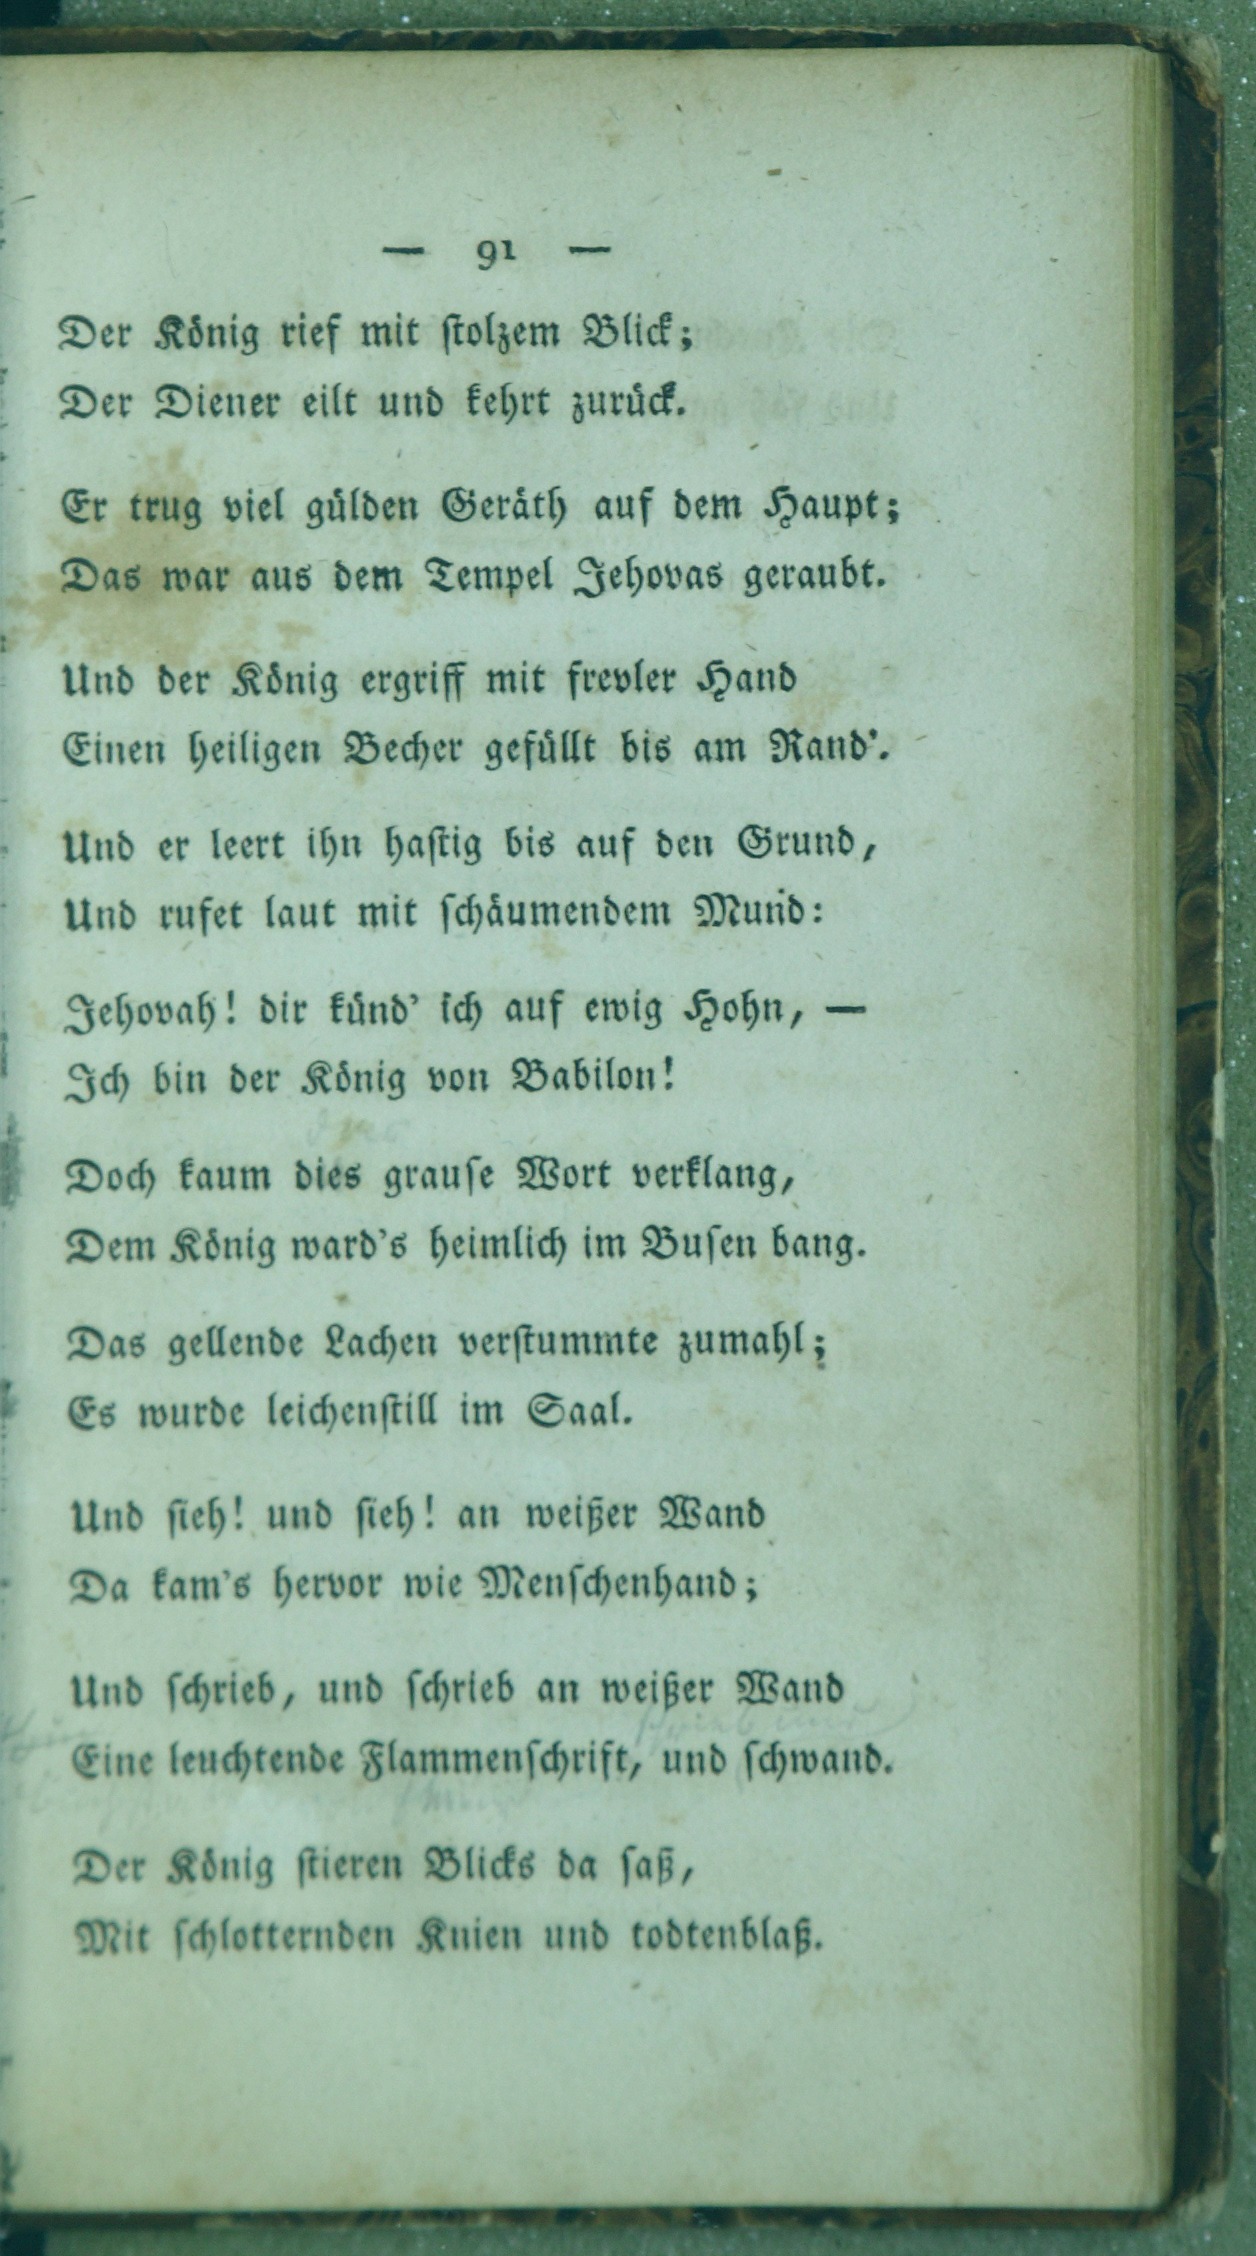 — 91 —
Der König rief mit stolzem Blick;
Der Diener eilt und kehrt zurück.
Er trug viel gülden Geräth auf dem Haupt;
Das war aus dem Tempel Jehovas geraubt.
Und der König ergriff mit frevler Hand
Einen heiligen Becher gefüllt bis am Rand'.
Und er leert ihn hastig bis auf den Grund,
Und rufet laut mit schäumendem Mund:
Jehovah! dir künd' ich auf ewig Hohn, —
Ich bin der König von Babilon!
Doch kaum dies grause Wort verklang,
Dem König ward's heimlich im Busen bang.
Das gellende Lachen verstummte zumahl;
Es wurde leichenstill im Saal.
Und sieh! und sieh! an weißer Wand
Da kam's hervor wie Menschenhand;
Und schrieb, und schrieb an weißer Wand
Eine leuchtende Flammenschrift, und schwand.
Der König stieren Blicks da saß,
Mit schlotternden Knien und todtenblaß.